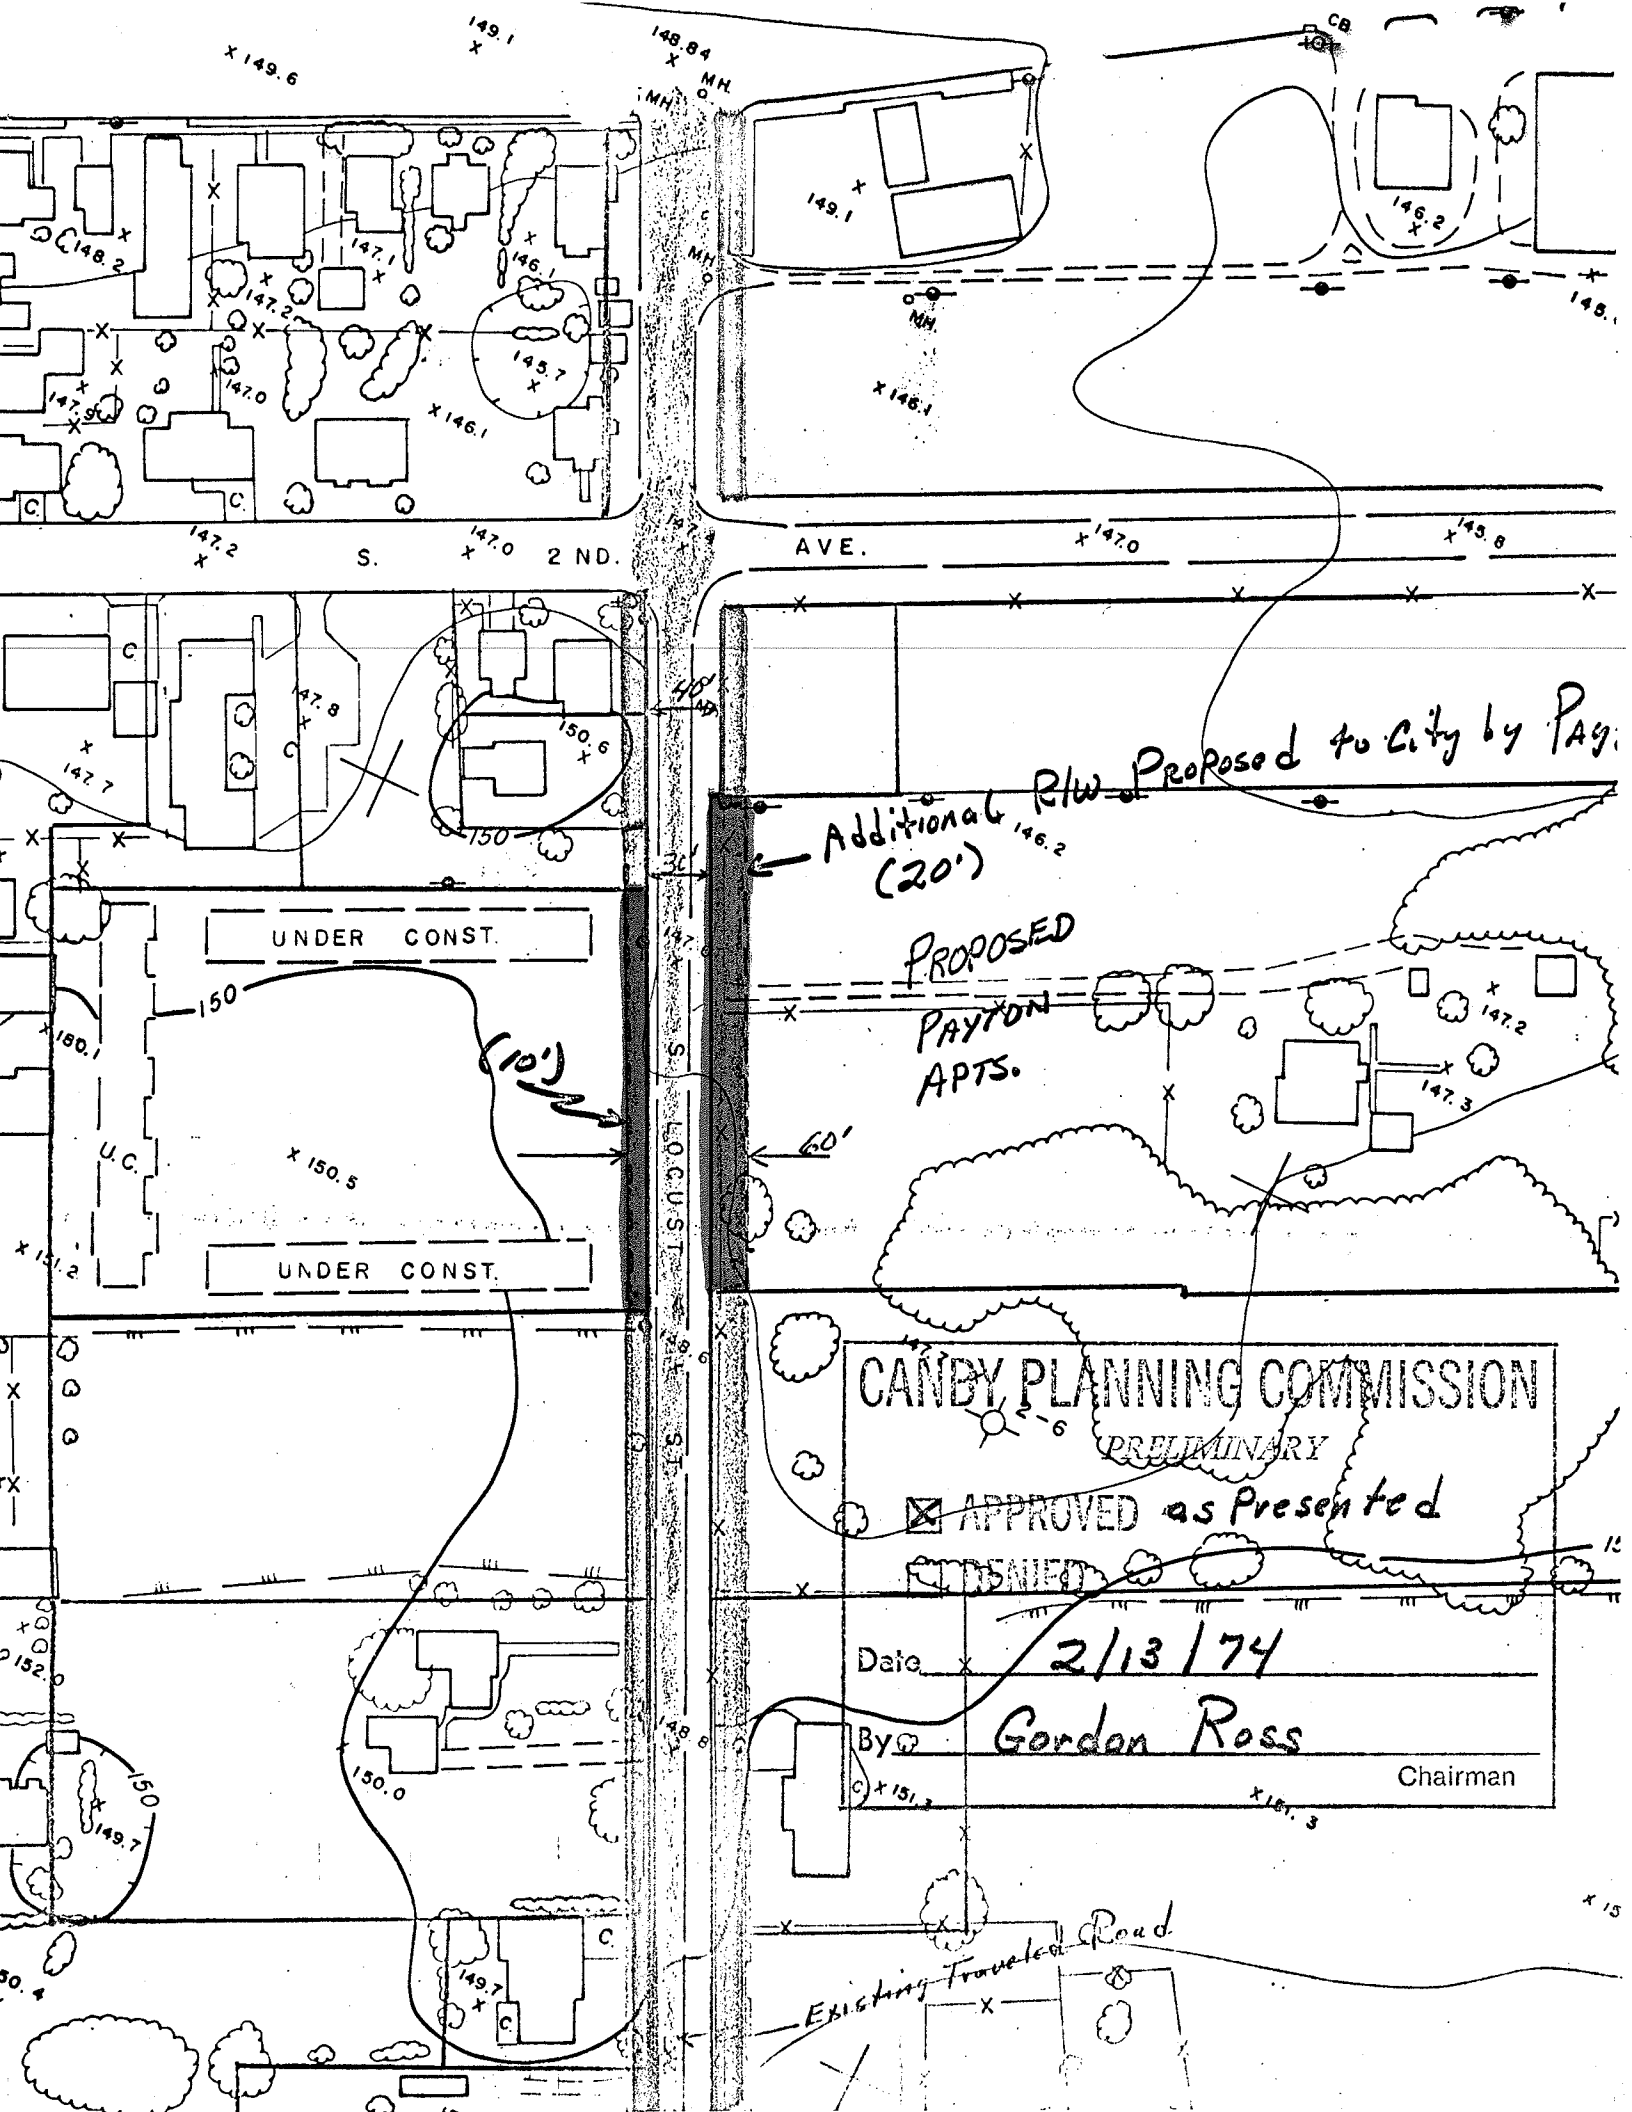 149.6
149.1
148.84
MH.
MH.
CB.
149.1
146.2
148.2
147.1
146.1
MH.
147.2
145.7
MH.
147.0
146.1
146.1
C.
C.
147.2
S. 2 ND. AVE.
147.0
147.0
145.8
C.
147.8
C
40'
150.6
147.7
150
Additional R/W Proposed to City by Pay
(20')
146.2
UNDER CONST.
PROPOSED
PAYTON
APTS.
150
147.2
(10')
147.3
60'
U.C.
150.5
S. LOCUST ST.
151.2
UNDER CONST.
CANBY PLANNING COMMISSION
2-6
PRELIMINARY
APPROVED as Presented
DENIED
Date 2/13/74
By Gordon Ross
Chairman
152.0
148.8
150.0
150
149.7
C.
151.3
151.3
C.
149.7
C.
50.4
Existing Traveled Road